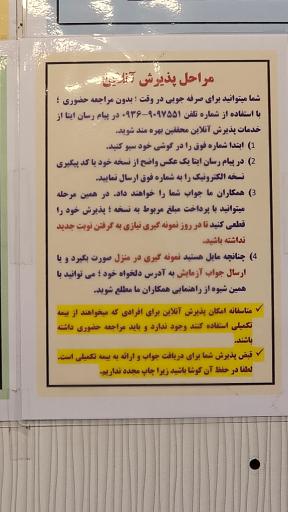 مراحل پذیرش آنلاین
شما میتوانید برای صرفه جویی در وقت ؛ بدون مراجعه حضوری ؛
با استفاده از شماره تلفن ۹۰۹۷۵۵۱-۰۹۳۶ در پیام رسان ایتا از
خدمات پذیرش آنلاین محققین بهره مند شوید.
1) ابتدا شماره فوق را در گوشی خود سیو کنید.
2) در پیام رسان ایتا یک عکس واضح از نسخه خود یا کد پیگیری
نسخه الکترونیک را به شماره فوق ارسال نمایید.
3) همکاران ما جواب شما را خواهند داد. در همین مرحله
میتوانید با پرداخت مبلغ مربوط به نسخه ؛ پذیرش خود را
قطعی کنید تا در روز نمونه گیری نیازی به گرفتن نوبت جدید
نداشته باشید.
4) چنانچه مایل هستید نمونه گیری در منزل صورت بگیرد و یا
ارسال جواب آزمایش به آدرس دلخواه خود ؛ می توانید با
همین شیوه از راهنمایی همکاران ما مطلع شوید.
✓ متاسفانه امکان پذیرش آنلاین برای افرادی که میخواهند از بیمه
تکمیلی استفاده کنند وجود ندارد و باید مراجعه حضوری داشته
باشند.
✓ قبض پذیرش شما برای دریافت جواب و ارائه به بیمه تکمیلی است.
لطفا در حفظ آن کوشا باشید زیرا چاپ مجدد نداریم.